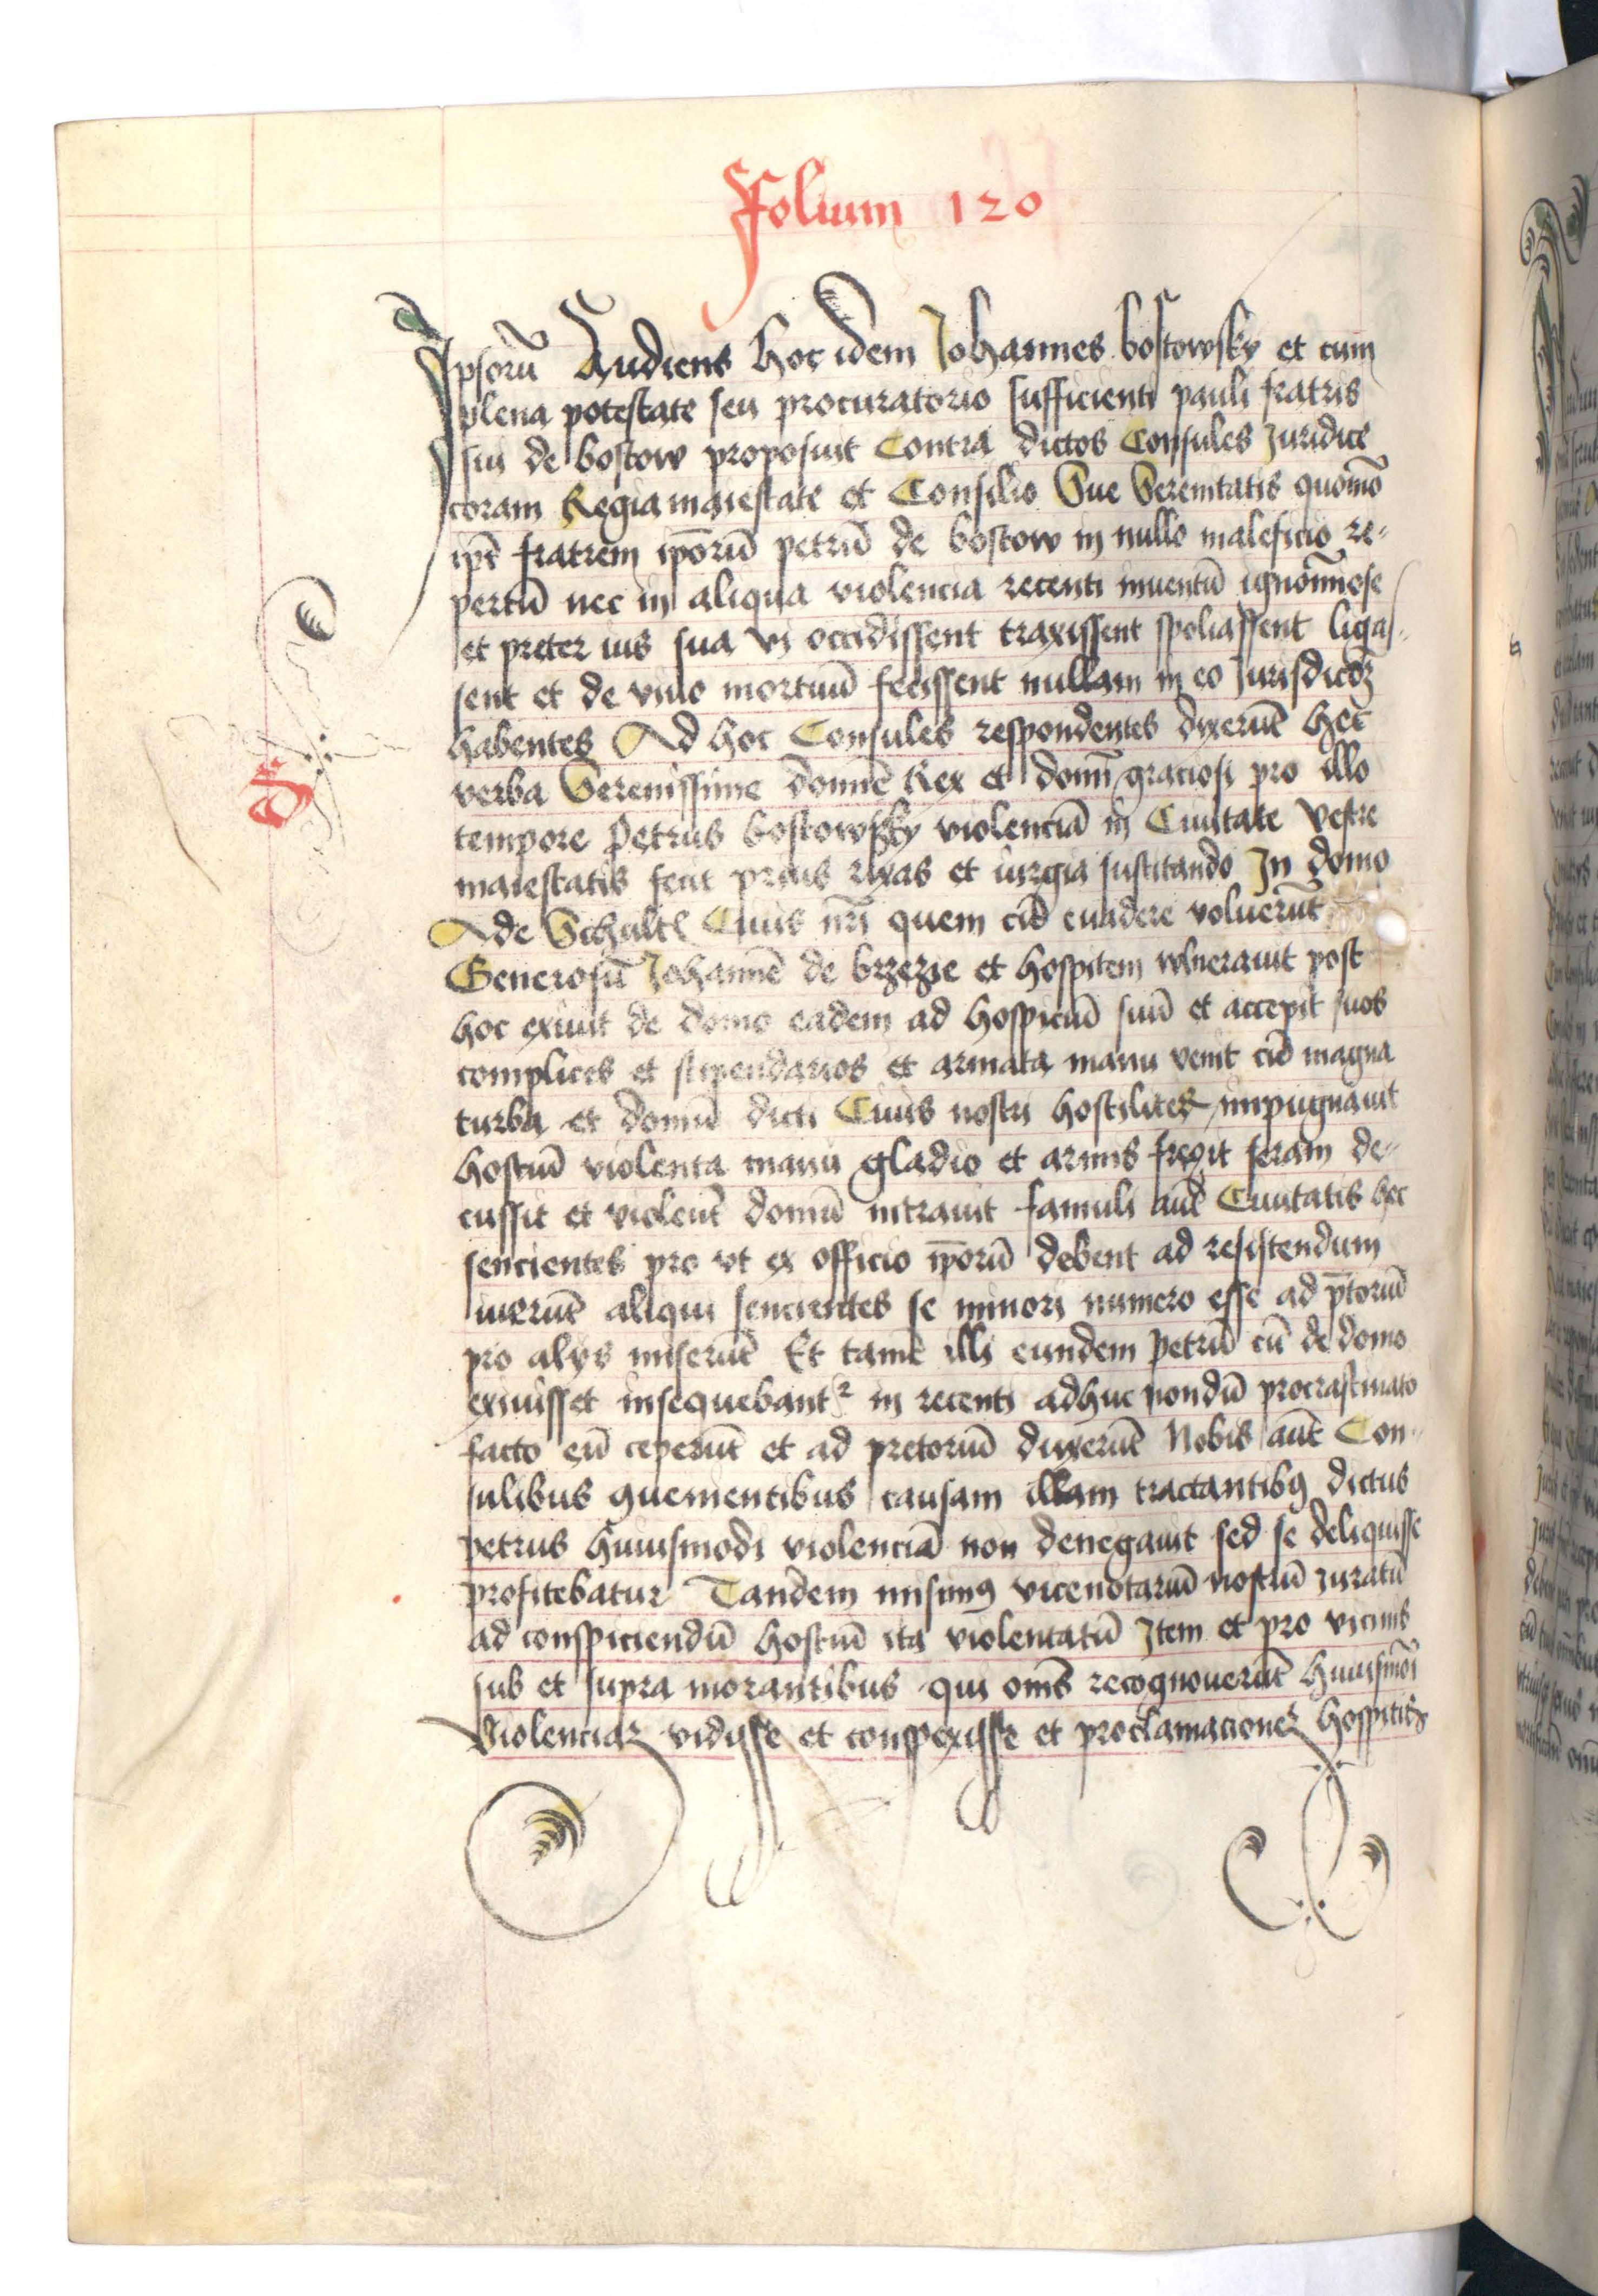 Folium 120
Ipsorū Audiens hoc idem Johannes bostowsky et cum
plena potestate seu procuratorio sufficienti pauli fratris
sui de bostow proposuit Contra dictos Consules Juridice
coram Regia maiestate et Consilio Sue Serenitatis quomō
ip̄i fratrem ip̄orū petrū de bostow in nullo maleficio re-
pertū nec in aliqua violencia recenti inuentū ignomīose
et preter ius sua vi occidissent traxissent spoliassent ligas-
sent et de viuo mortuū fecissent nullam in eo Jurisdicōȝ
habentes Ad hoc Consules respondentes dixerūt hec
verba Serenissime dominē Rex et domī graciosi pro illo
tempore Petrus bostowsky violenciā in Ciuitate Vestre
maiestatis fecit prius rixas et iurgia suscitando In domo
Ade Schult Ciuis nr̄i quem cū euadere voluerūt
Generosū Johannē de brzezie et hospitem wlnerauit post
hoc exiuit de domo eadem ad hospiciū suū et accepit suos
complices et stipendarios et armata manu venit cū magna
turba et domū dicti Ciuis nostri hostilites impugnauit
hostiū violenta manu gladio et armis fregit seram de-
cussit et violent̄ domū intrauit famuli aut̄ Ciuitatis hec
sencientes pro vt ex officio ip̄orū debent ad resistendum
iuerūt aliqui sencientes se minori numero esse ad p̄toriū
pro alys miserūt Et tamē illi eundem Petrū cū de domo
exiuisset insequebantʳ in recenti adhuc nondū procrastinato
facto eū ceperūt et ad pretoriū duxerūt Nobis aut̄ Con-
sulibus quementibus causam illam tractantibꝯ dictus
petrus huiusmodi violenciā non denegauit sed se deliquisse
profitebatur Tandem misimꝯ vicenotariū nostrū iuratū
ad conspiciendū hostiū ita violentatū Item et pro vicinis
sub et supra morantibus qui om̄s recognouerūt huiusmōi
Violenciaꝫ vidisse et conspexisse et proclamacioneꝫ hospitis